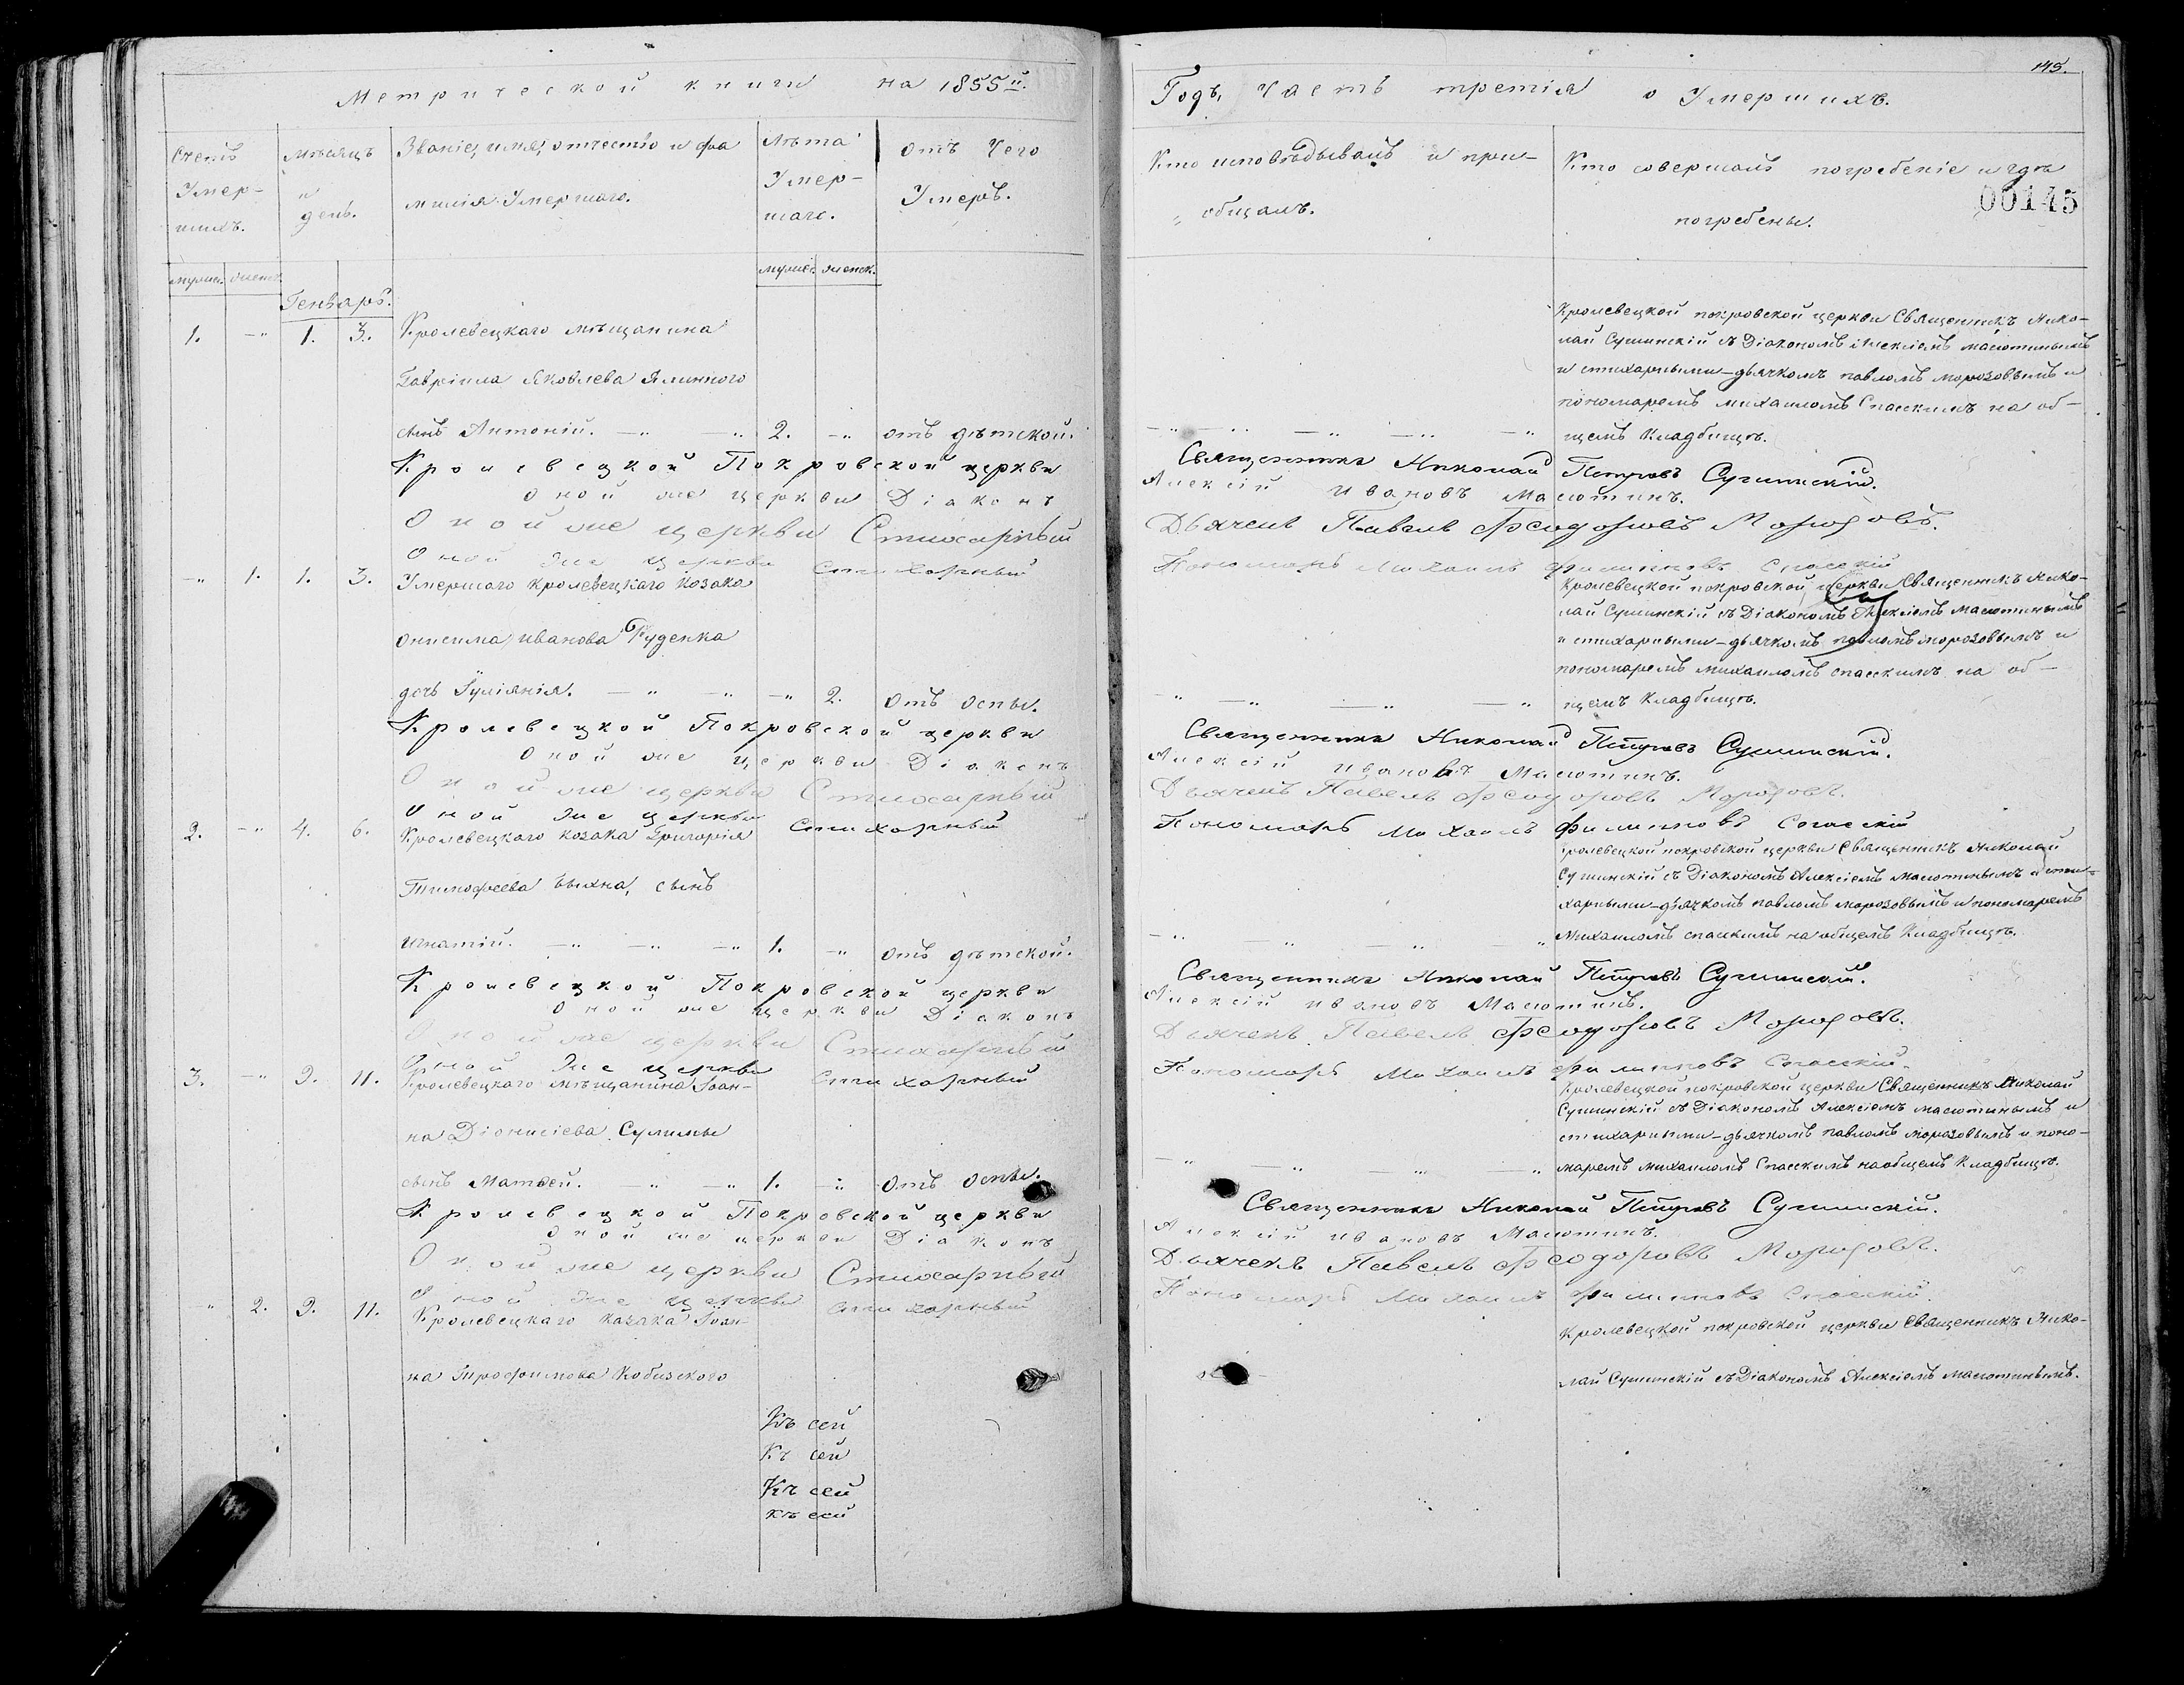 Метрической книги на 1855й.
Годъ, часть третія о Умершихъ.
145.
00145
Счетъ Умершихъ.
Мѣсяцъ и день.
Званіе, имя, отчество и фамилія Умершаго.
Лѣта Умершаго.
Отъ Чего Умеръ.
Кто исповѣдывалъ и пріобщалъ.
Кто совершалъ погребеніе и гдѣ погребены.
мужес. женск.
мужес. женск.
Генварь.
1. -„ 1. 3. Кролевецкаго мѣщанина
Гавріила Яковлева Ялинного
сынъ Антоній. -„ -„ 2. -„ отъ дѣтской.
Кролевецкой покровской церкви Священникъ Нико-
лай Сушинскій съ Діакономъ Алексіемъ Масютинымъ
и стихарными-дьячкомъ павломъ морозовымъ и
пономаремъ михаиломъ Спасскимъ на об-
щемъ Кладбищѣ.
Кролевецкой Покровской церкви Священникъ Николай Петровъ Сушинскій.
Оной же церкви Діаконъ Алексій Ивановъ Масютинъ.
Оной же церкви Стихарный Дьячекъ Павелъ Феодоровъ Морозовъ.
Оной же церкви стихарный Пономарь Михаилъ Филипповъ Спасскій
-„ 1. 1. 3. Умершаго кролевецкаго козака
Онисима Иванова Руденка
дочь Іуліянія. -„ -„ -„ 2. Отъ оспы.
Кролевецкой покровской церкви Священникъ Нико-
лай Сушинскій съ Діакономъ Алексіемъ Масютинымъ
и стихарными-дьячкомъ павломъ морозовымъ и
пономаремъ михаиломъ спасскимъ на об-
щемъ Кладбищѣ.
Кролевецкой Покровской церкви Священникъ Николай Петровъ Сушинскій.
Оной же церкви Діаконъ Алексій Ивановъ Масютинъ.
Оной же церкви Стихарный Дьячекъ Павелъ Феодоровъ Морозовъ.
Оной же церкви стихарный Пономарь Михаилъ Филипповъ Спасскій
2. -„ 4. 6. Кролевецкаго козака Григорія
Тимофеева сынъ
Игнатій. -„ -„ -„ 1. -„ отъ дѣтской.
Кролевецкой покровской церкви Священникъ Николай
Сушинскій съ Діакономъ Алексіемъ Масютинымъ и сти-
харными-дьячкомъ павломъ морозовымъ и пономаремъ
Михаиломъ спасскимъ на общемъ Кладбищѣ.
Кролевецкой Покровской церкви Священникъ Николай Петровъ Сушинскій.
Оной же церкви Діаконъ Алексій Ивановъ Масютинъ.
Оной же церкви Стихарный Дьячекъ Павелъ Феодоровъ Морозовъ.
Оной же церкви стихарный Пономарь Михаилъ Филипповъ Спасскій.
3. -„ 9. 11. Кролевецкаго мѣщанина Іоан-
на Діонисіева Сулимы
сынъ Матвей. -„ -„ 1. -„ Отъ оспы.
Кролевецкой покровской церкви Священникъ Николай
Сушинскій съ Діакономъ Алексіемъ масютинымъ и
стихарными-дьячкомъ павломъ морозовымъ и поно-
маремъ михаиломъ Спасскимъ на общемъ Кладбищѣ.
Кролевецкой Покровской церкви Священникъ Николай Петровъ Сушинскій.
Оной же церкви Діаконъ Алексій Ивановъ Масютинъ.
Оной же церкви Стихарный Дьячекъ Павелъ Феодоровъ Морозовъ.
Оной же церкви стихарный Пономарь Михаилъ Филипповъ Спасскій.
-„ 2. 9. 11. Кролевецкаго казака Іоан-
на Трофимова Кобизского
Кролевецкой покровской церкви Священникъ Нико-
лай Сушинскій съ Діакономъ Алексіемъ масютинымъ.
Къ сей
Къ сей
Къ сей
къ сей